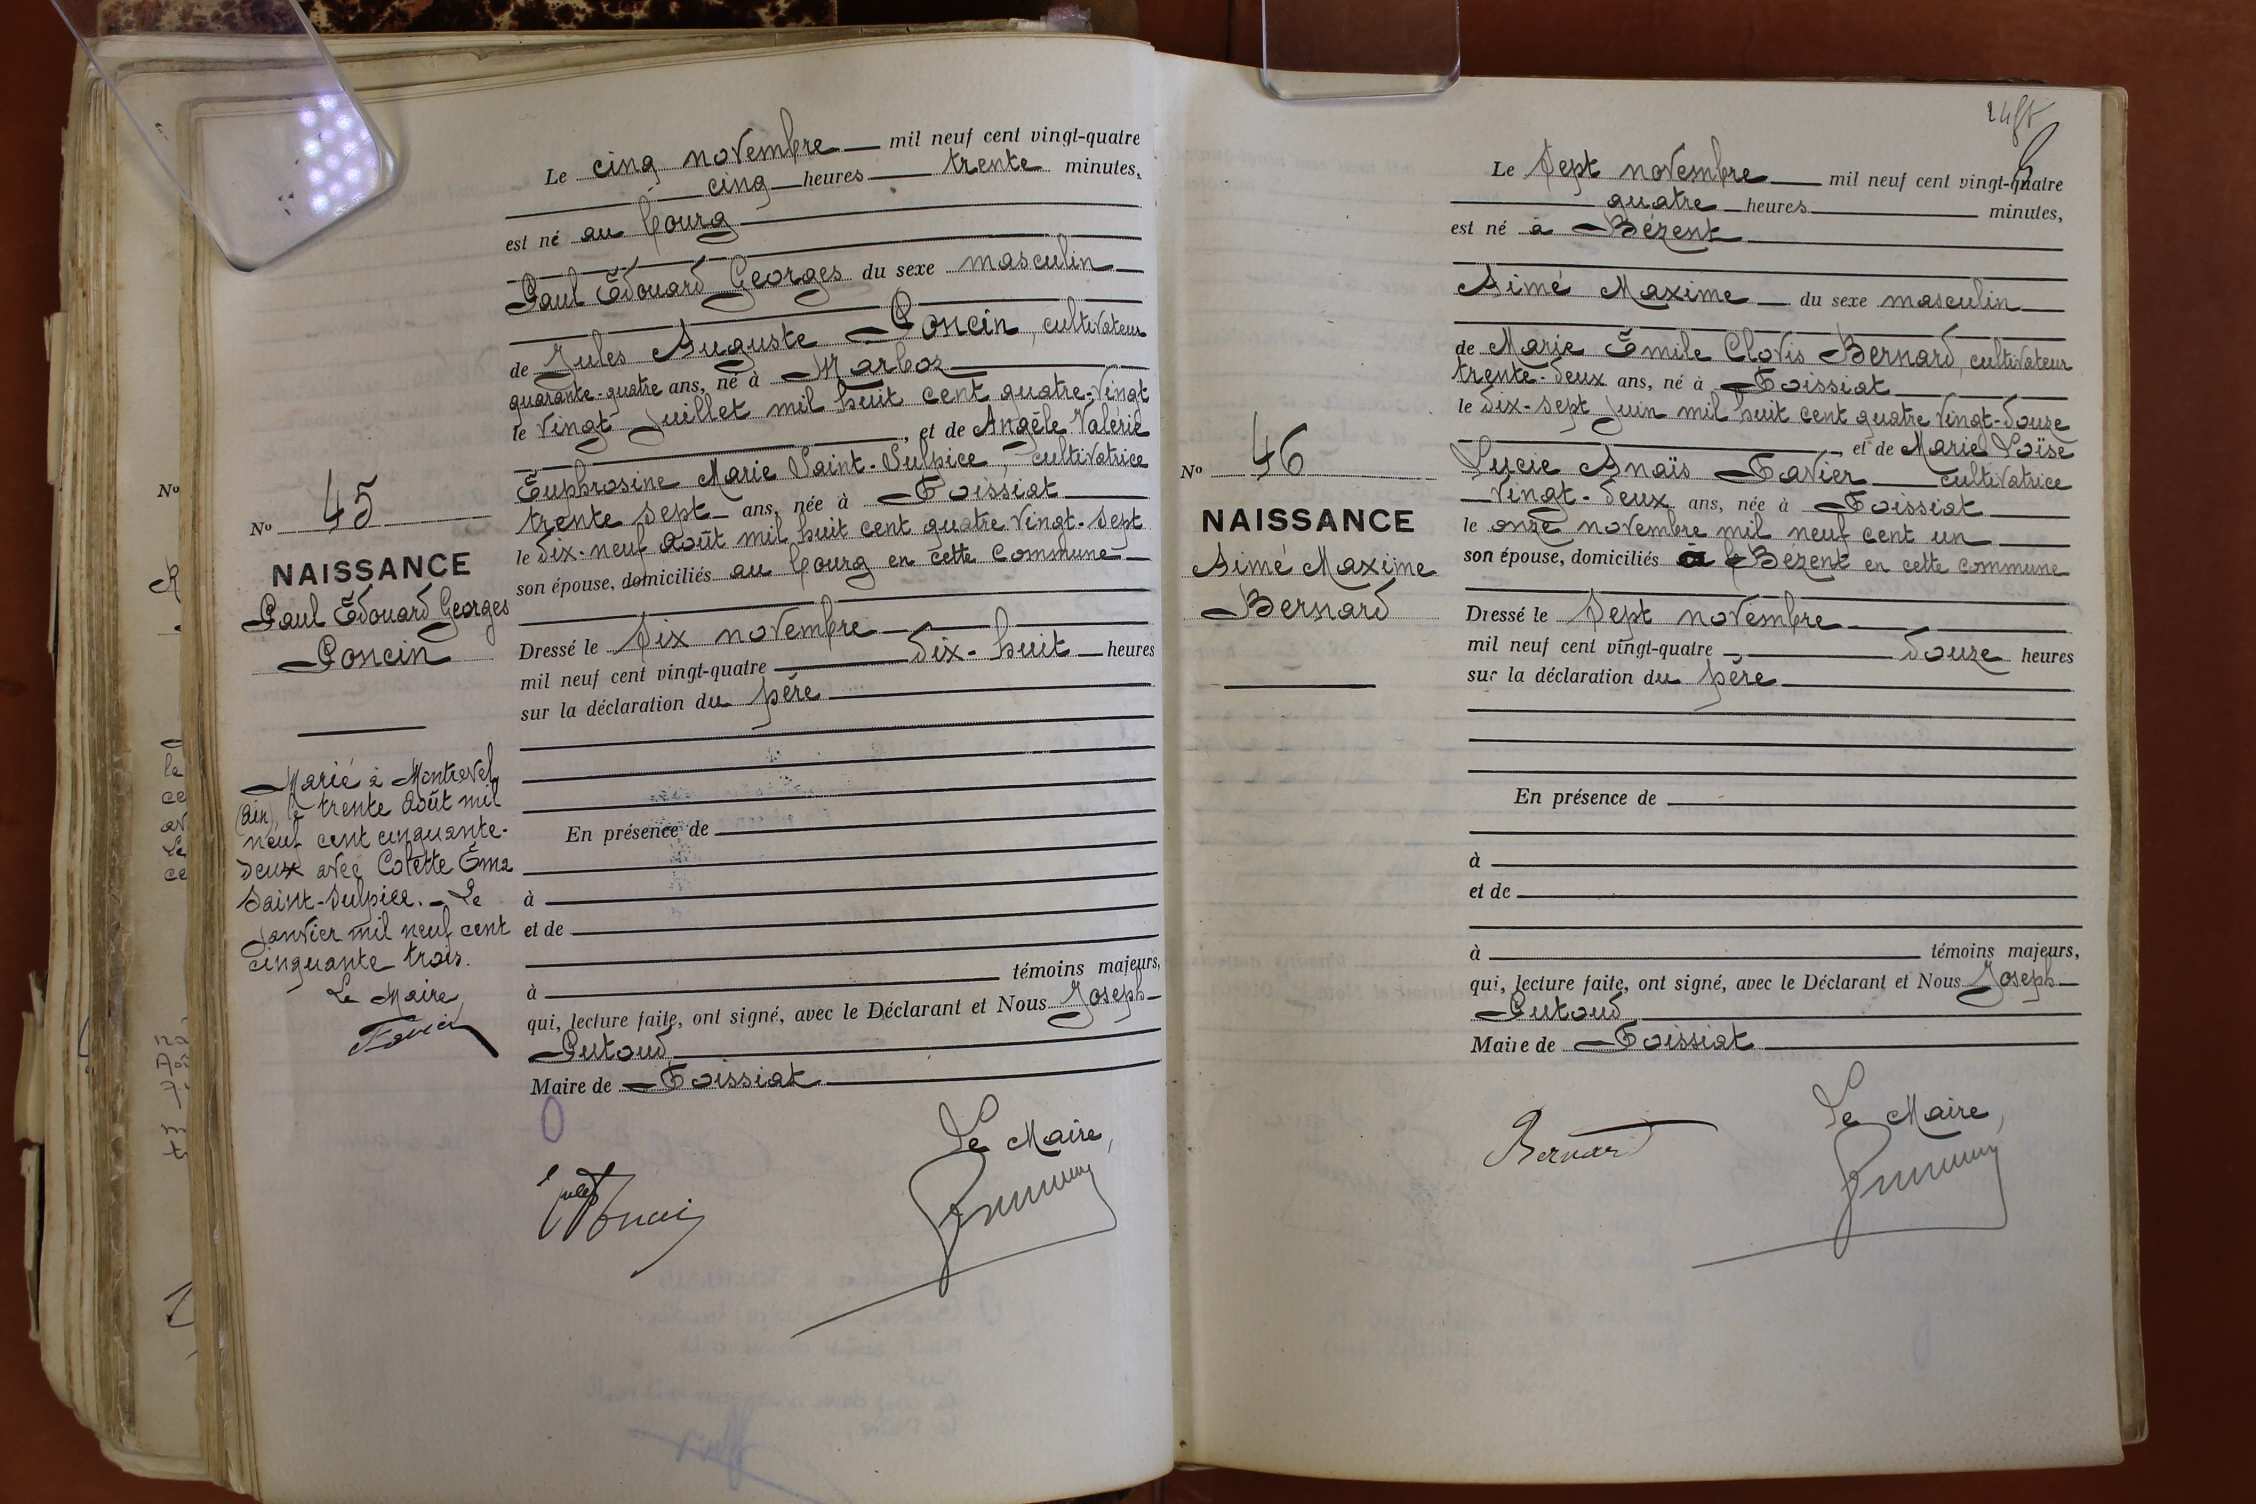 Le cinq novembre mil neuf cent vingt-quatre
cinq heures trente minutes,
est né au bourg
Paul Édouard Georges du sexe masculin
de Jules Auguste Poncin, cultivateur
quarante-quatre ans, né à Marboz
le vingt juillet mil huit cent quatre-vingt
, et de Angèle Valérie
Euphrosine Marie Saint-Sulpice, cultivatrice
trente sept ans, née à Foissiat
le dix-neuf août mil huit cent quatre vingt-sept
son épouse, domiciliés au bourg en cette commune
Nº
Nº 45
NAISSANCE
Paul Édouard Georges
Poncin
Dressé le six novembre
mil neuf cent vingt-quatre dix-huit heures
sur la déclaration du père
Marié à Montrevel
(Ain), le trente août mil
neuf cent cinquante-
deux avec Colette Ema
Saint-Sulpice. - Le
janvier mil neuf cent
cinquante trois.
Le Maire
En présence de
à
et de
à témoins majeurs,
qui, lecture faite, ont signé, avec le Déclarant et Nous Joseph
Putoud
Maire de Foissiat
Le Maire,
Le sept novembre mil neuf cent vingt-quatre
quatre heures minutes,
est né à Bézent
Aimé Maxime du sexe masculin
de Marie Émile Clovis Bernard, cultivateur
trente-deux ans, né à Foissiat
le dix-sept juin mil huit cent quatre vingt-douze
et de Marie Loïse
Lucie Anaïs Favier cultivatrice
vingt-deux ans, née à Foissiat
le onze novembre mil neuf cent un
son épouse, domiciliés à Bézent en cette commune
Nº 46
NAISSANCE
Aimé Maxime
Bernard
Dressé le sept novembre
mil neuf cent vingt-quatre douze heures
sur la déclaration du père
En présence de
à
et de
à témoins majeurs,
qui, lecture faite, ont signé, avec le Déclarant et Nous Joseph
Putoud
Maire de Foissiat
Bernard
Le Maire,